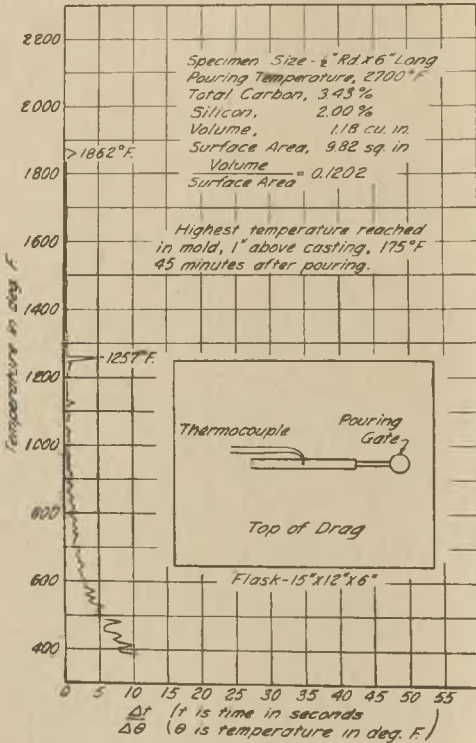 2200
2000
1800
1600
1400
1200
1000
800
600
400
Temperature in deg. F.
Specimen Size - ½" Rd. x 6" Long
Pouring Temperature, 2700°F.
Total Carbon, 3.43%
Silicon, 2.00%
Volume, 1.18 cu. in.
Surface Area, 9.82 sq. in
Volume
Surface Area = 0.1202
>1862°F.
Highest temperature reached
in mold, 1" above casting, 175°F
45 minutes after pouring.
1257°F.
Thermocouple
Pouring
Gate
Top of Drag
Flask-15"x12"x6"
0 5 10 15 20 25 30 35 40 45 50 55
Δt (t is time in seconds)
Δθ (θ is temperature in deg. F.)